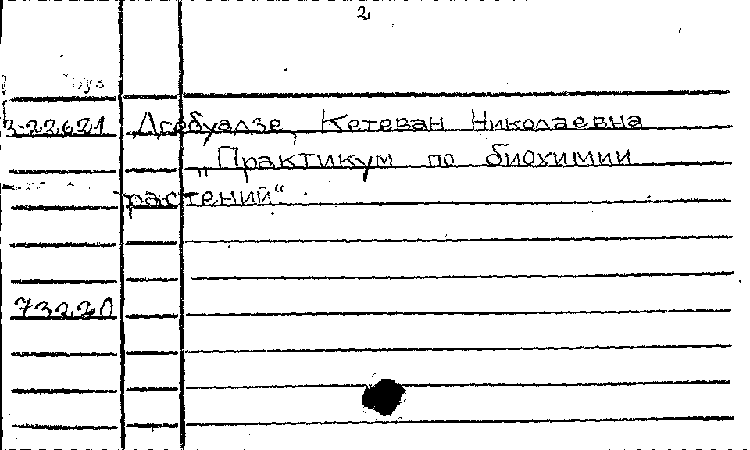 2
3-22621 Дгебуадзе, Кетеван Николаевна
„Практикум по биохимии
растений“
73220